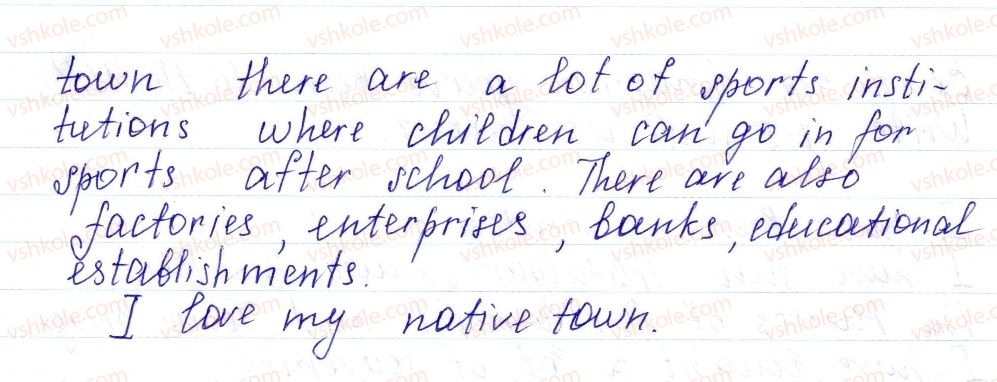 town there are a lot of sports insti-
tutions where children can go in for
sports after school. There are also
factories, enterprises, banks, educational
establishments.
I love my native town.